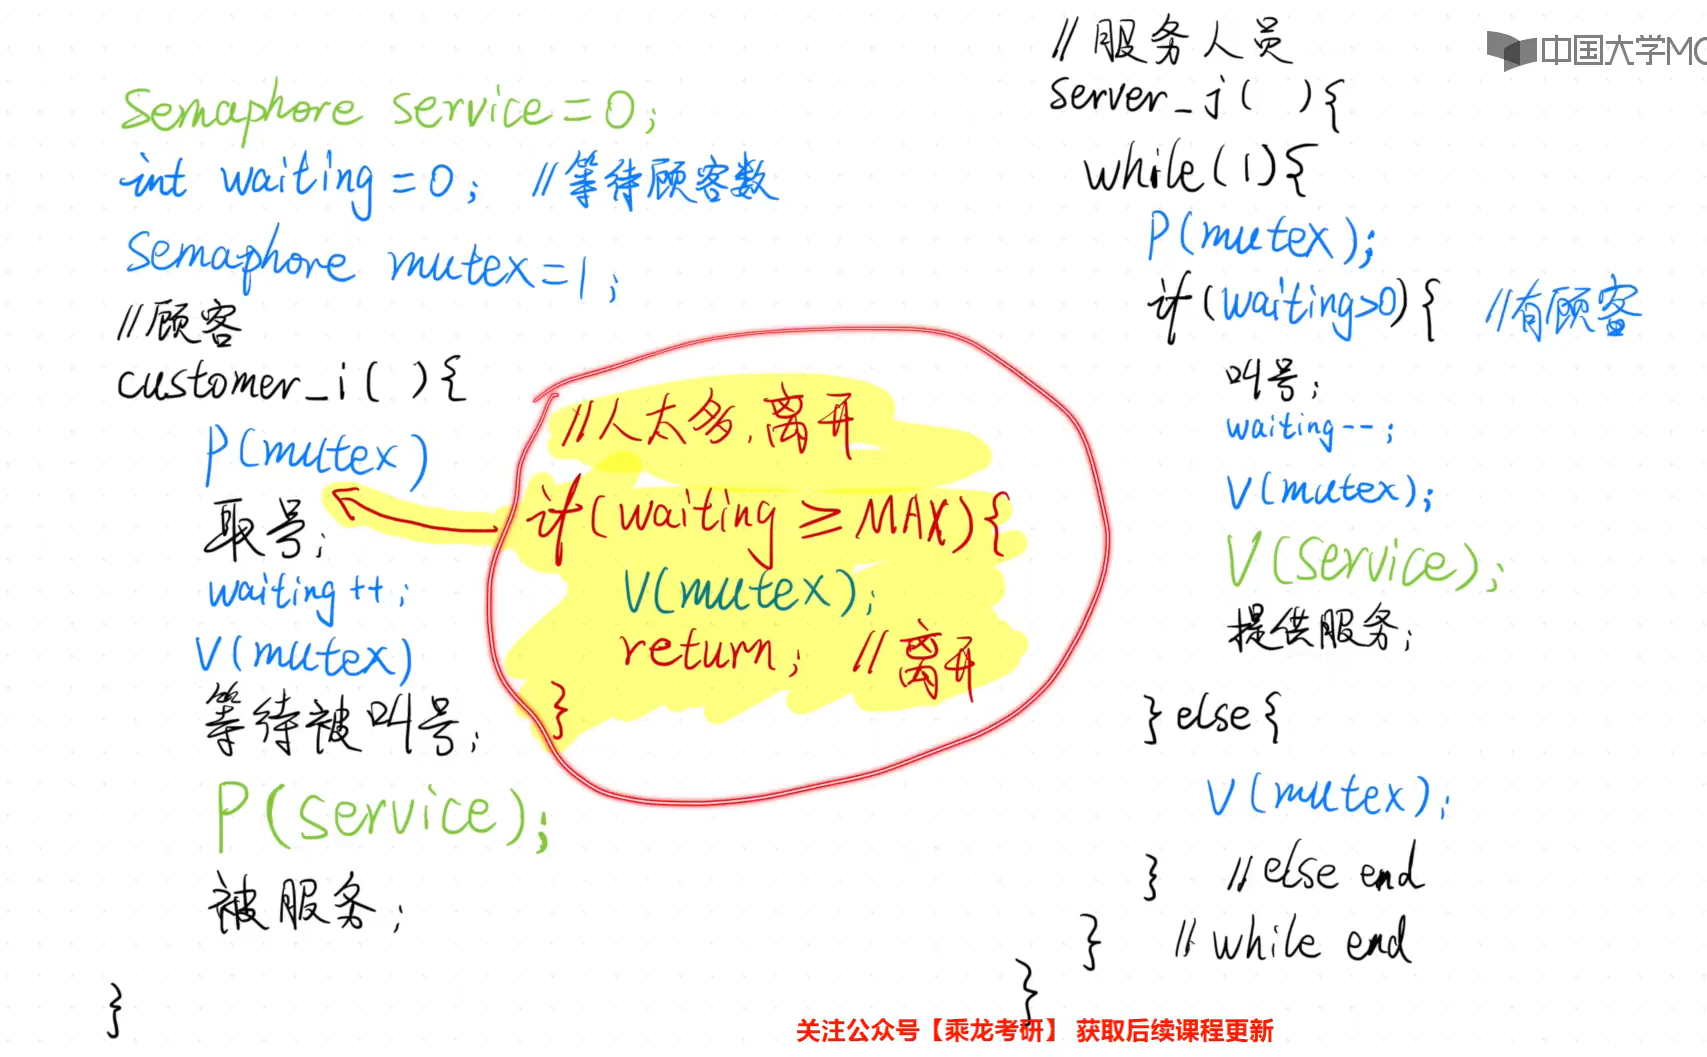 Semaphore service=0;
int waiting=0; //等待顾客数
Semaphore mutex=1;
//顾客
customer_i( ){
P(mutex)
取号;
waiting++;
V(mutex)
等待被叫号;
P(service);
被服务;
}
//人太多,离开
if(waiting≥MAX){
V(mutex);
return; //离开
}
//服务人员
server_j( ){
while(1){
P(mutex);
if(waiting>0){ //有顾客
叫号;
waiting--;
V(mutex);
V(service);
提供服务;
}else{
V(mutex);
} //else end
} //while end
}
中国大学MO
关注公众号【乘龙考研】 获取后续课程更新